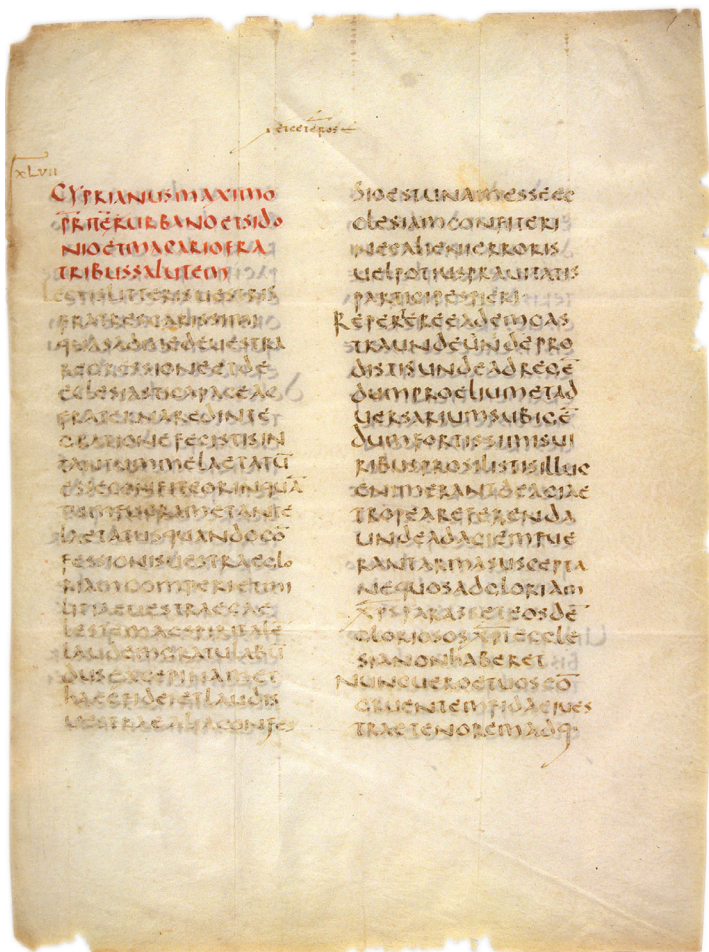 et ceteros
XLVII
CYPRIANUSMAXIMO
PRBTERURBANOETSIDO
NIOETMACARIOFRA
TRIBUSSALUTEM
LECTISLITTERISUESTRIS
FRATRESCARISSIMI
QUASADMEDEUESTRA
REGRESSIONEETDE
ECCLESIASTICAPACEAC
FRATERNAREDINTE
GRATIONEFECISTISIN
TANTUMMELAETATŪ
ESSECONFITEORINQUĀ
TUMFUERAMETANTE
LAETATUSQUANDOCŌ
FESSIONISUESTRAEGLO
RIAMCOMPERIETMI
LITIAEUESTRAECAE
LESTEMACSPIRITALĒ
LAUDEMGRATULABŪ
DUSEXCEPINAMET
HAECFIDEIETLAUDIS
UESTRAEALIACONFES
SIOESTUNAMESSEEC
CLESIAMCONFITERI
NECALIENIERRORIS
UELPOTIUSPRAUITATIS
PARTICIPESFIERI
REPETEREEADEMCAS
TRAUNDEUNDEPRO
DISTISUNDEADREGĒ
DUMPROELIUMETAD
UERSARIUMSUBIGĒ
DUMFORTISSIMISUI
RIBUSPROSILISTISILLUC
ENIMERANTDEACIAE
TROPEAREFERENDA
UNDEADACIEMFUE
RANTARMASUSCEPTA
NEQUOSADGLORIAM
X̄PSPARASSETEOSDĒ
GLORIOSOSX̄PIECCLE
SIANONHABERET
NUNCUEROETUOSCŌ
GRUENTEMFIDAEIUES
TRAETENOREMADQ